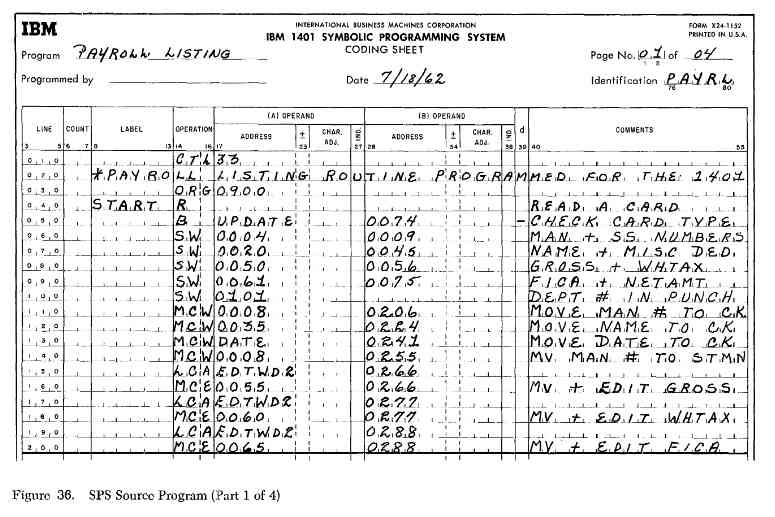 IBM
INTERNATIONAL BUSINESS MACHINES CORPORATION
IBM 1401 SYMBOLIC PROGRAMMING SYSTEM
CODING SHEET
FORM X24-1152
PRINTED IN U.S.A.
Program PAYROLL LISTING
Page No. 01 of 04
1 2
Programmed by
Date 7/18/62
Identification PAYRL
76 80
(A) OPERAND (B) OPERAND
LINE COUNT LABEL OPERATION ADDRESS ± CHAR. ADJ. IND. ADDRESS ± CHAR. ADJ. IND. d COMMENTS
3 5 6 7 8 13 14 16 17 23 27 28 34 38 39 40 55
010 CTL 33
020 *PAYROLL LISTING ROUTINE PROGRAMMED FOR THE 1401
030 ORG 0900
040 START R READ A CARD
050 B UPDATE 0074 – CHECK CARD TYPE
060 SW 0004 0009 MAN + SS NUMBERS
070 SW 0020 0045 NAME + MISC DED
080 SW 0050 0056 GROSS + WHTAX
090 SW 0061 0075 FICA + NETAMT
100 SW 0101 DEPT # IN PUNCH
110 MCW 0008 0206 MOVE MAN # TO CK
120 MCW 0035 0224 MOVE NAME TO CK
130 MCW DATE 0241 MOVE DATE TO CK
140 MCW 0008 0255 MV MAN # TO STMN
150 LCA EDTWD2 0266
160 MCE 0055 0266 MV + EDIT GROSS
170 LCA EDTWD2 0277
180 MCE 0060 0277 MV + EDIT WHTAX
190 LCA EDTWD2 0288
200 MCE 0065 0288 MV + EDIT FICA
Figure 36. SPS Source Program (Part 1 of 4)